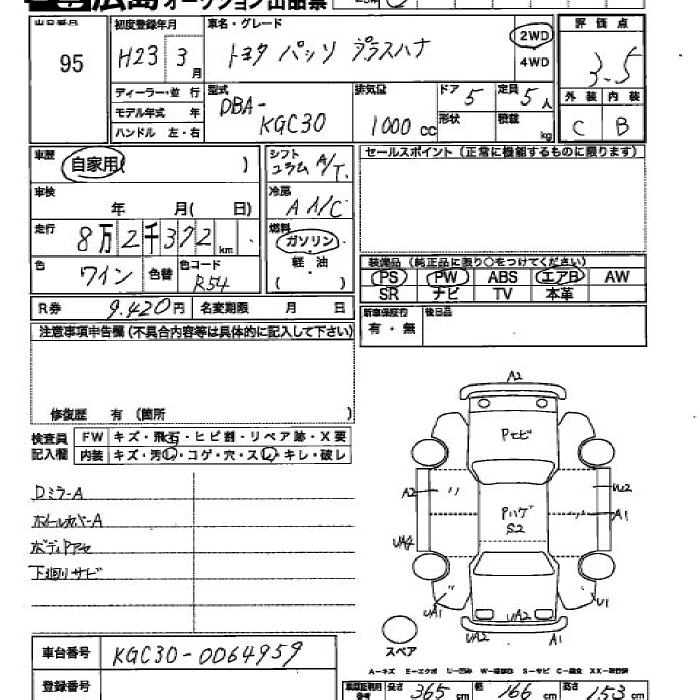 広島オークション出品票
出品番号
95
初度登録年月
H23 3月
車名・グレード
トヨタ パッソ プラスハナ
2WD
4WD
評価点
3.5
外装 内装
C B
ディーラー・並行
モデル年式 年
ハンドル 左・右
型式
DBA-
KGC30
排気量
1000 cc
ドア 5
形状
定員 5人
積載 kg
車歴
自家用( )
車検
年 月( 日)
走行
8万2千372 km
色
ワイン
色替
色コード
R54
シフト
コラムA/T
冷房
A A/C
燃料
ガソリン
軽・油
( )
セールスポイント(正常に機能するものに限ります)
装備品(純正品に限り○をつけてください)
PS PW ABS エアB AW
SR ナビ TV 本革
R券 9.420円
名変期限 月 日
新車保証行
有・無
後日品
注意事項申告欄(不具合内容等は具体的に記入して下さい)
修復歴 有(箇所 )
検査員
記入欄
FW キズ・飛石・ヒビ割・リペア跡・X要
内装 キズ・汚レ・コゲ・穴・スレ・キレ・破レ
Dミラ-A
ホイールカバーA
ボディPアセ
下廻リサビ
A2
Pエビ
A2
Pハゲ
S2
A1
UA1
U1
UA2
UA2
A1
スペア
A-キズ E-エクボ U-凹み S-サビ C-腐食
車台番号 KGC30-0064959
登録番号
長さ 365 cm 幅 166 cm 高さ 153 cm